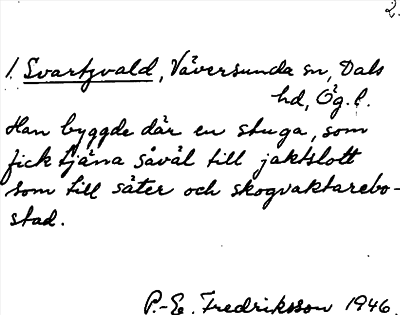 2.
1. Svartzvald, Väversunda sn, Dals
hd, Ög. l.
Han byggde där en stuga, som
fick tjäna såväl till jaktslott
som till säter och skogvaktarebo-
stad.
P.-E. Fredriksson 1946.